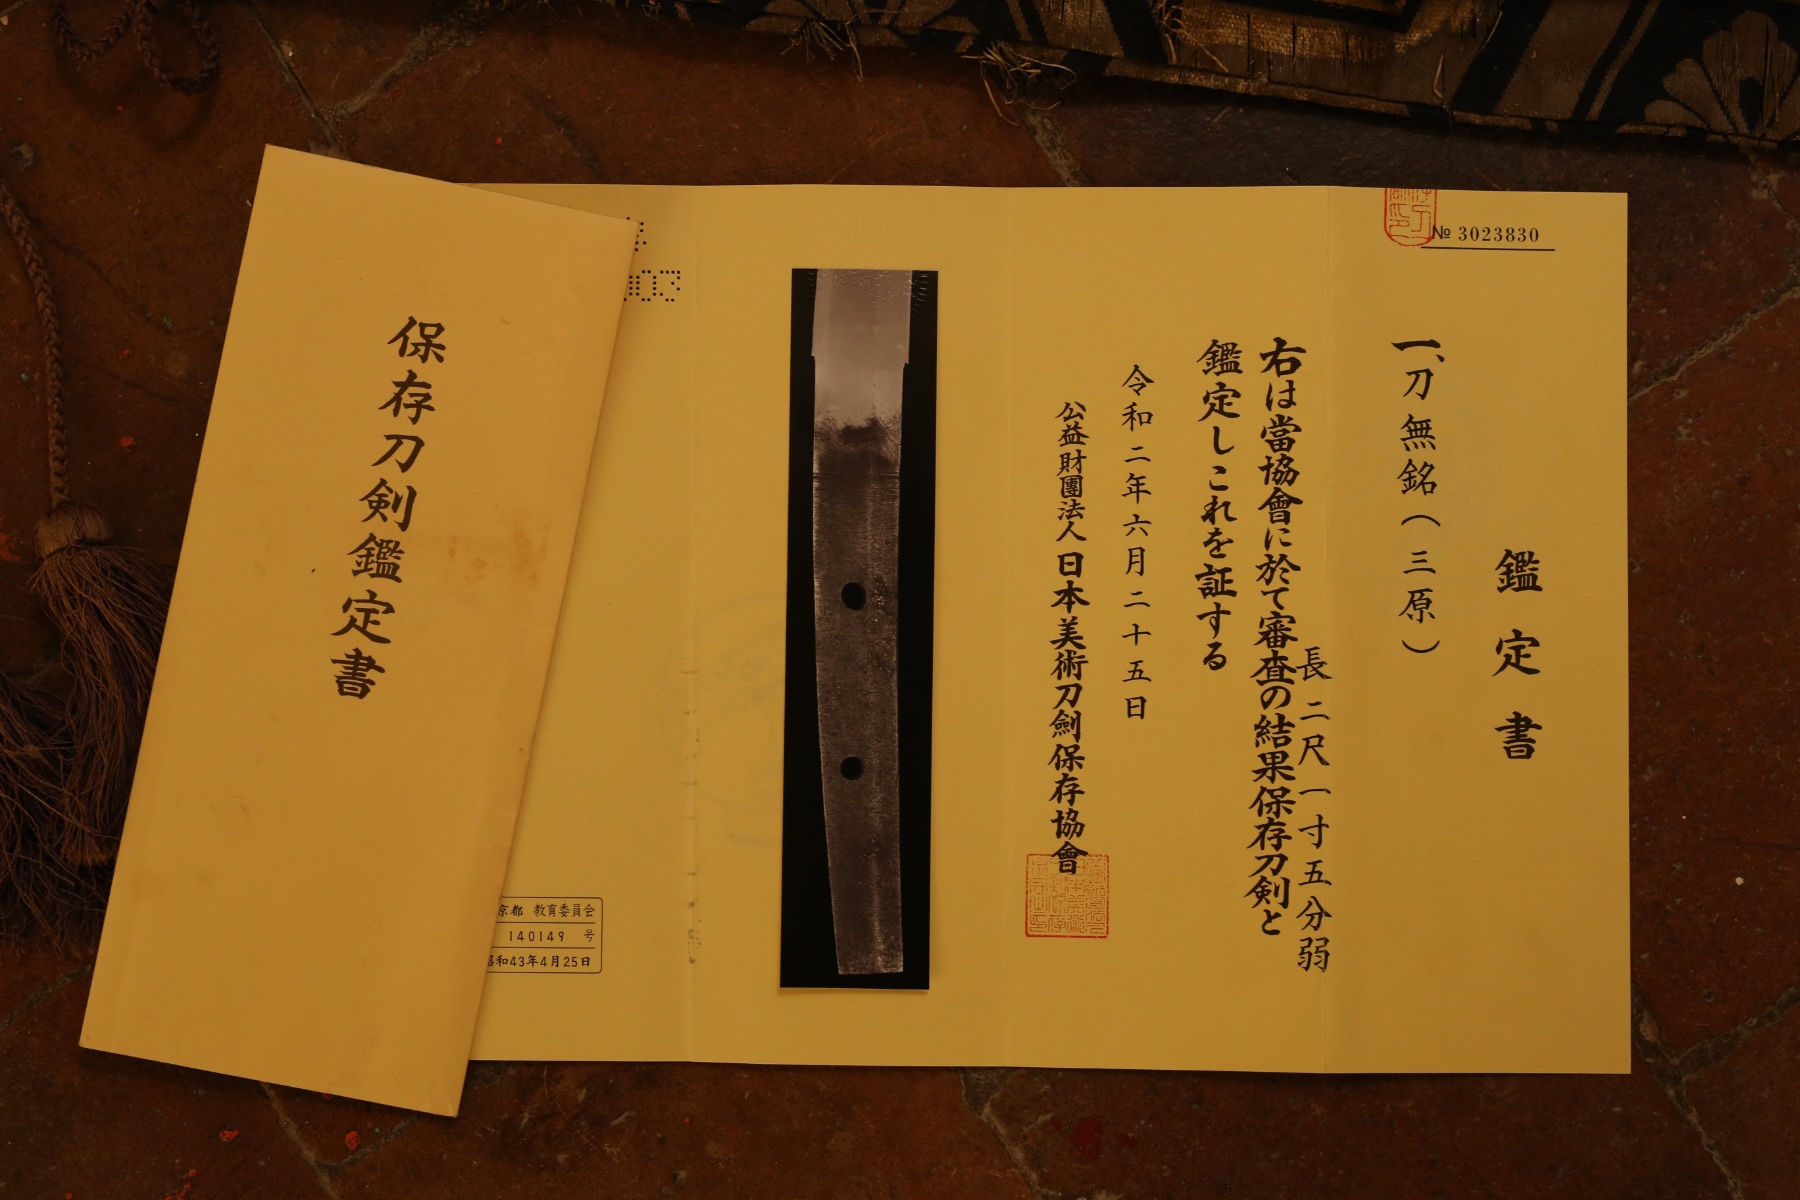 № 3023830
鑑定書
一、刀 無銘（三原）
長 二尺一寸五分弱
右は當協會に於て審査の結果保存刀剣と
鑑定しこれを証する
令和二年六月二十五日
公益財團法人 日本美術刀劍保存協會
京都 教育委員会
140149 号
昭和43年4月25日
保存刀剣鑑定書